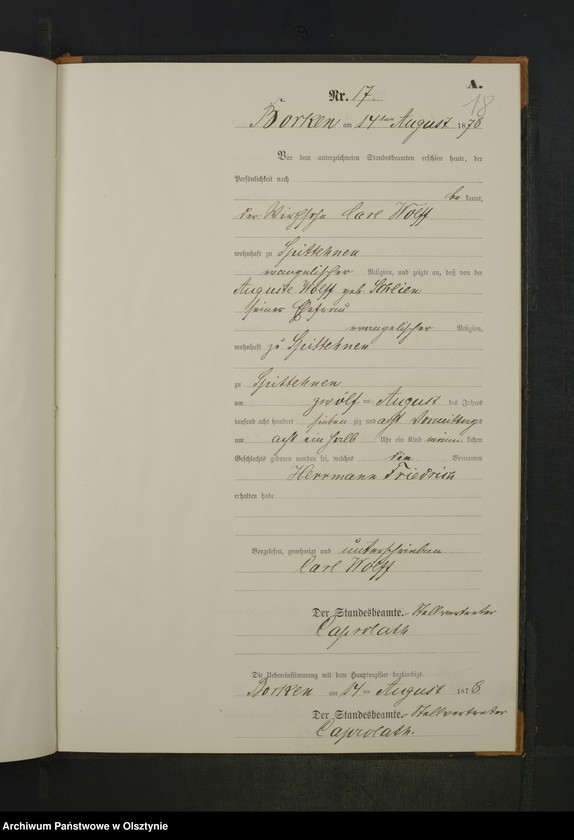 A.
18
Nr. 17.
Borken am 14ten August 1878
Vor dem unterzeichneten Standesbeamten erschien heute, der
Persönlichkeit nach
be kannt,
der Wirthssohn Carl Wolff
wohnhaft zu Spittehnen
evangelischer Religion, und zeigte an, daß von der
Auguste Wolff geb. Schlien
seiner Ehefrau
evangelischer Religion,
wohnhaft zu Spittehnen
zu Spittehnen
am zwölf ten August des Jahres
tausend acht hundert sieben zig und acht Vormittags
um acht ein halb Uhr ein Kind männ lichen
Geschlechts geboren worden sei, welches die Vornamen
Herrmann Friedrich
erhalten habe
Vorgelesen, genehmigt und unterschrieben
Carl Wolff
Der Standesbeamte. Stellvertreter
Caprolath
Die Uebereinstimmung mit dem Hauptregister beglaubigt.
Borken am 14 ten August 1878
Der Standesbeamte. Stellvertreter
Caprolath.
Archiwum Państwowe w Olsztynie